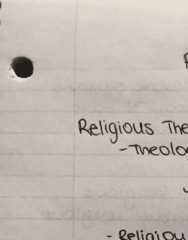 Religious The
-Theolo
- Religiou